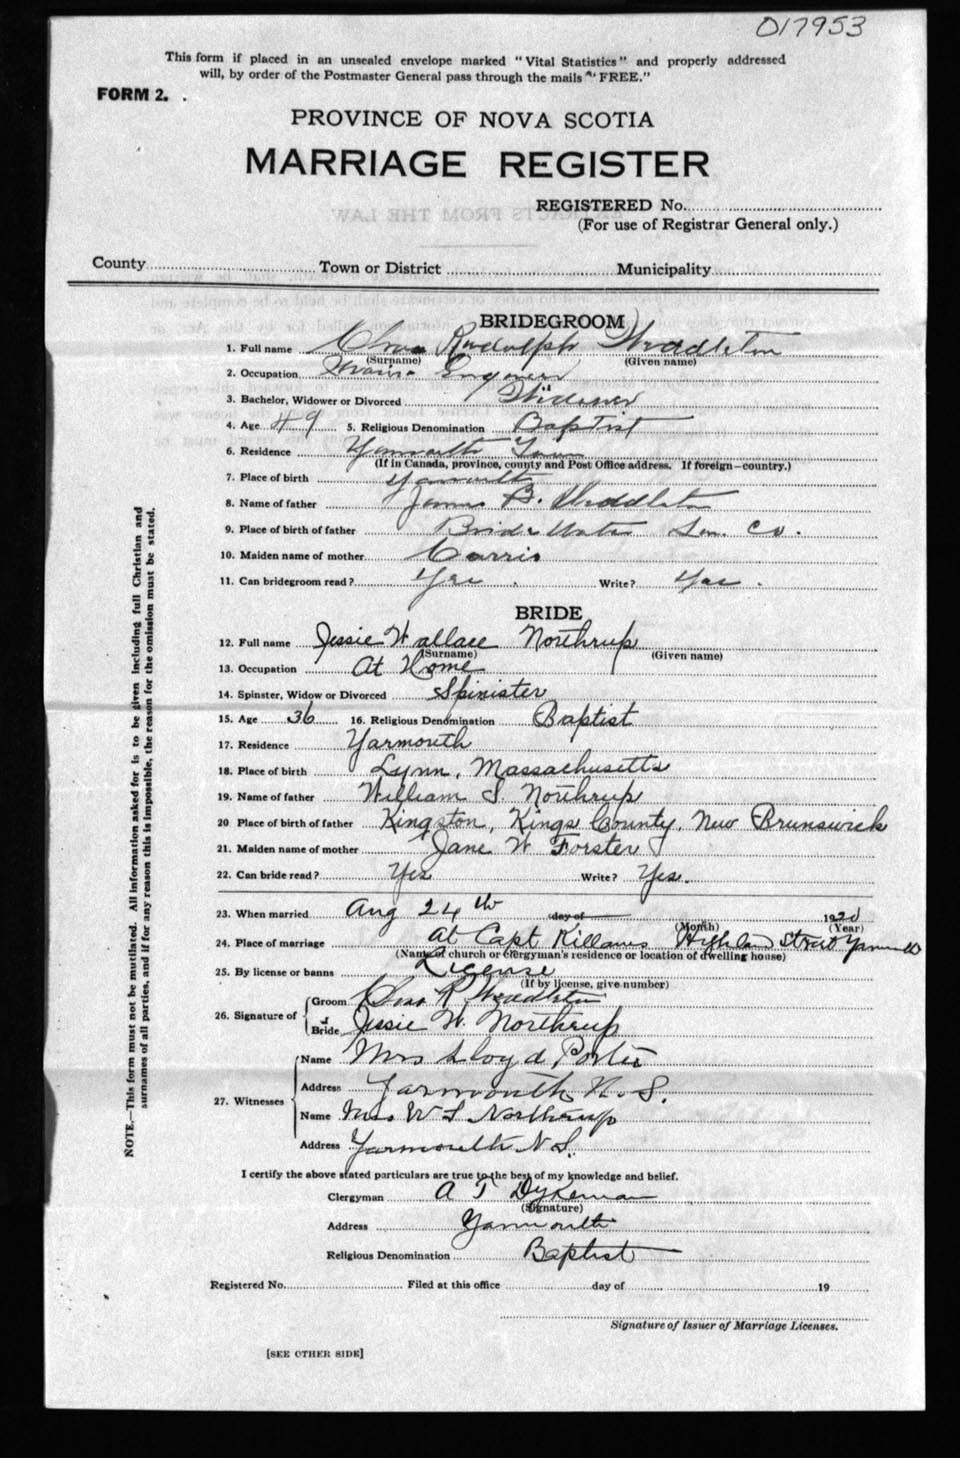 017953
This form if placed in an unsealed envelope marked "Vital Statistics" and properly addressed
will, by order of the Postmaster General pass through the mails "FREE."
FORM 2.
PROVINCE OF NOVA SCOTIA
MARRIAGE REGISTER
REGISTERED No.
(For use of Registrar General only.)
County Town or District Municipality
BRIDEGROOM
1. Full name Chas Rudolph
(Surname) (Given name)
2. Occupation Engineer
3. Bachelor, Widower or Divorced Widower
4. Age 49 5. Religious Denomination Baptist
6. Residence Yarmouth Town
(If in Canada, province, county and Post Office address. If foreign—country.)
7. Place of birth Yarmouth
8. Name of father James B.
9. Place of birth of father Bridgewater Lun. Co.
10. Maiden name of mother
11. Can bridegroom read? Yes. Write? Yes.
BRIDE
12. Full name Jessie Wallace Northrup
(Surname) (Given name)
13. Occupation At Home
14. Spinster, Widow or Divorced Spinister
15. Age 36 16. Religious Denomination Baptist
17. Residence Yarmouth
18. Place of birth Lynn, Massachusetts
19. Name of father William S. Northrup
20 Place of birth of father Kingston, Kings County, New Brunswick
21. Maiden name of mother Jane W Forster
22. Can bride read? Yes Write? Yes.
23. When married Aug 24th day of 1920
(Month) (Year)
24. Place of marriage At Capt Killams Highland Street Yarmouth
(Name of church or clergyman's residence or location of dwelling house)
25. By license or banns License
(If by license, give number)
26. Signature of Groom Chas R
Bride Jessie W. Northrup
27. Witnesses Name Mrs Lloyd Porter
Address Yarmouth N.S.
Name Mrs W S Northrup
Address Yarmouth N S.
I certify the above stated particulars are true to the best of my knowledge and belief.
Clergyman A T Dykeman
(Signature)
Address Yarmouth
Religious Denomination Baptist
Registered No. Filed at this office day of 19
Signature of Issuer of Marriage Licenses.
[SEE OTHER SIDE]
NOTE.—This form must not be mutilated. All information asked for is to be given including full Christian and
surnames of all parties, and if for any reason this is impossible, the reason for the omission must be stated.